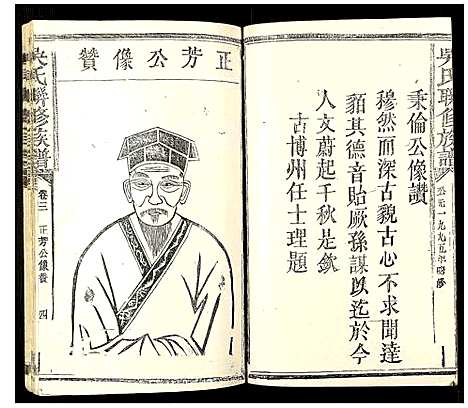 吳氏聯修族譜
公元一九九五年
秉倫公像讚
穆然而深古貌古心不求聞達
貊其德音貽厥孫謀以迄於今
人文蔚起千秋是欽
古博州任士理題
正芳公像贊
吳氏聯修族譜
卷三
正芳公像贊
四